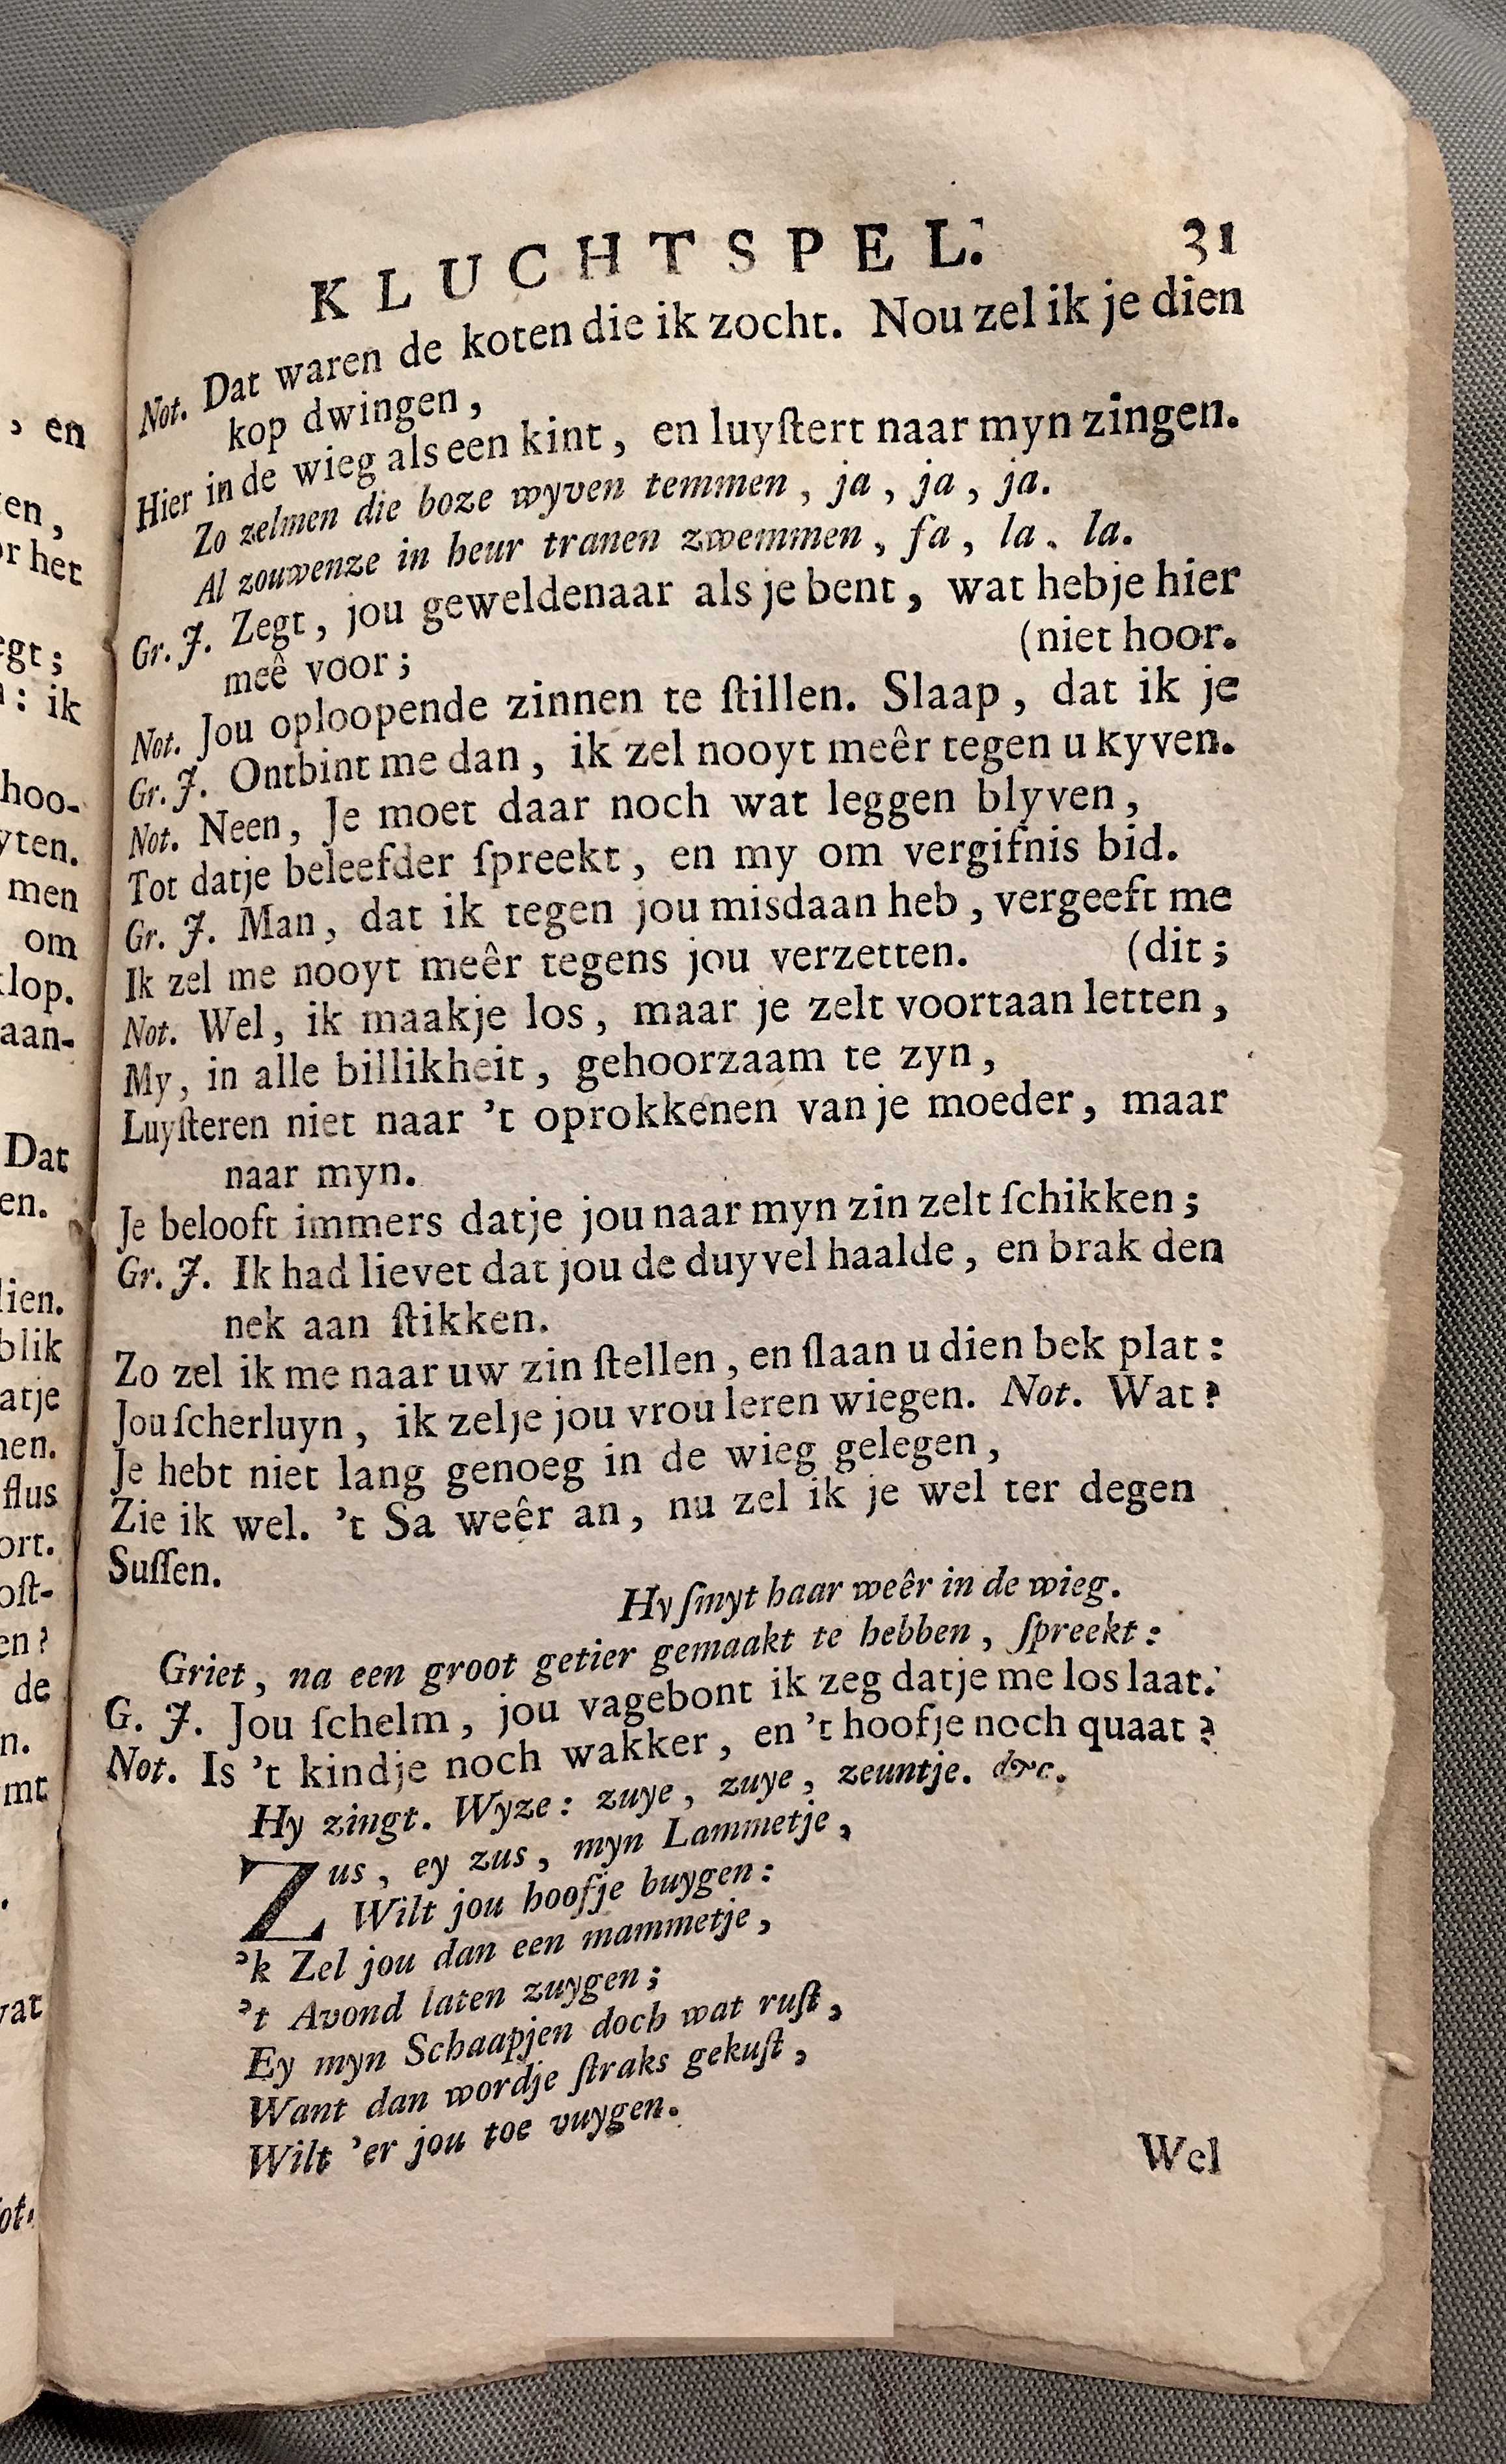 KLUCHTSPEL. 31
Not. Dat waren de koten die ik zocht. Nou zel ik je dien
kop dwingen,
Hier in de wieg als een kint, en luyſtert naar myn zingen.
Zo zelmen die boze wyven temmen, ja, ja, ja.
Al zouwenze in heur tranen zwemmen, fa, la, la.
Gr. J. Zegt, jou geweldenaar als je bent, wat hebje hier
meê voor; (niet hoor.
Not. Jou oploopende zinnen te ſtillen. Slaap, dat ik je
Gr. J. Ontbint me dan, ik zel nooyt meêr tegen u kyven.
Not. Neen, Je moet daar noch wat leggen blyven,
Tot datje beleefder ſpreekt, en my om vergifnis bid.
Gr. J. Man, dat ik tegen jou misdaan heb, vergeeft me
Ik zel me nooyt meêr tegens jou verzetten. (dit;
Not. Wel, ik maakje los, maar je zelt voortaan letten,
My, in alle billikheit, gehoorzaam te zyn,
Luyſteren niet naar 't oprokkenen van je moeder, maar
naar myn.
Je belooft immers datje jou naar myn zin zelt ſchikken;
Gr. J. Ik had liever dat jou de duyvel haalde, en brak den
nek aan ſtikken.
Zo zel ik me naar uw zin ſtellen, en ſlaan u dien bek plat:
Jou ſcherluyn, ik zelje jou vrou leren wiegen. Not. Wat?
Je hebt niet lang genoeg in de wieg gelegen,
Zie ik wel. 't Sa weêr an, nu zel ik je wel ter degen
Suſſen.
Hy ſmyt haar weêr in de wieg.
Griet, na een groot getier gemaakt te hebben, ſpreekt:
G. J. Jou ſchelm, jou vagebont ik zeg datje me los laat.
Not. Is 't kindje noch wakker, en 't hoofje noch quaat?
Hy zingt. Wyze: zuye, zuye, zeuntje. &c.
Zus, ey zus, myn Lammetje,
Wilt jou hoofje buygen:
'k Zel jou dan een mammetje,
't Avond laten zuygen;
Ey myn Schaapjen doch wat ruſt,
Want dan wordje ſtraks gekuſt,
Wilt 'er jou toe vuygen.
Wel
, en
en,
or het
egt;
: ik
hoo-
yten.
men
om
lop.
aan-
Dat
en.
lien.
blik
atje
nen.
ſlus
ort.
oſt-
en?
de
n.
mt
vat
ot.